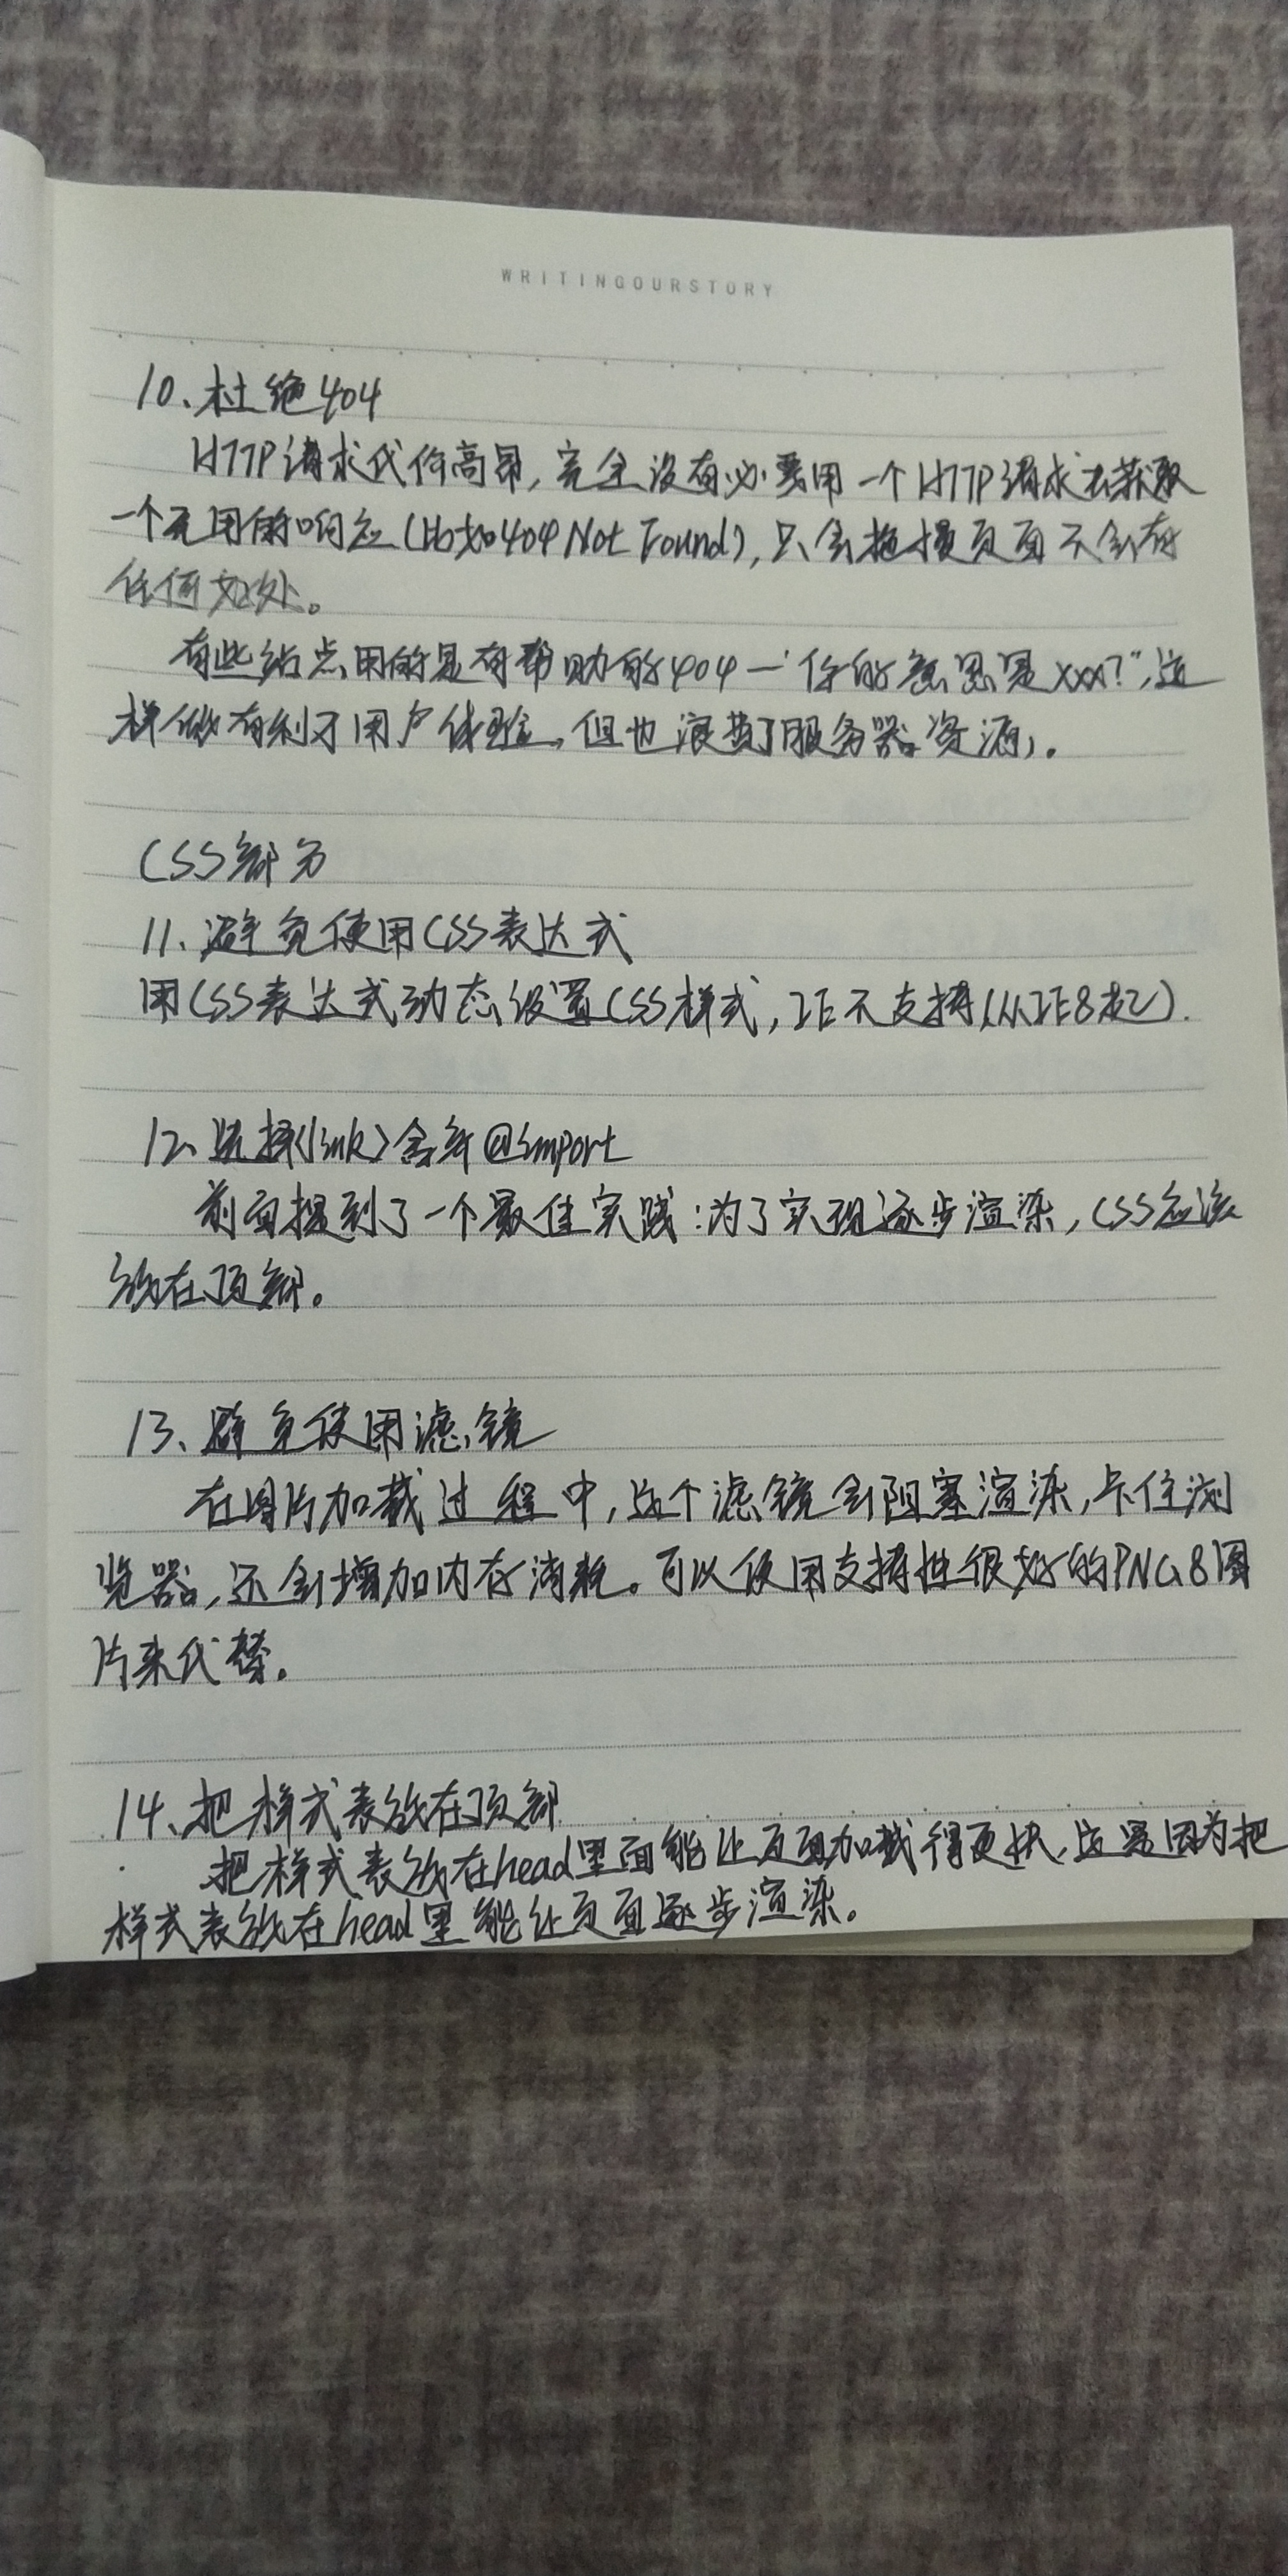 WRITINGOURSTORY
10、杜绝404
HTTP请求代价高昂,完全没有必要用一个HTTP请求去获取
一个无用的响应(比如404 Not Found),只会拖慢页面不会有
任何好处。
有些站点用的是有帮助的404—"你的意思是xxx?",这
样做有利于用户体验,但也浪费了服务器资源。
CSS部分
11、避免使用CSS表达式
用CSS表达式动态设置CSS样式,IE不支持(从IE8起).
12、选择<link>舍弃@import
前面提到了一个最佳实践:为了实现逐步渲染,CSS应该
放在顶部。
13、避免使用滤镜
在图片加载过程中,这个滤镜会阻塞渲染,卡住浏
览器,还会增加内存消耗。可以使用支持性很好的PNG8图
片来代替。
14、把样式表放在顶部
把样式表放在head里面能让页面加载得更快,这是因为把
样式表放在head里能让页面逐步渲染。